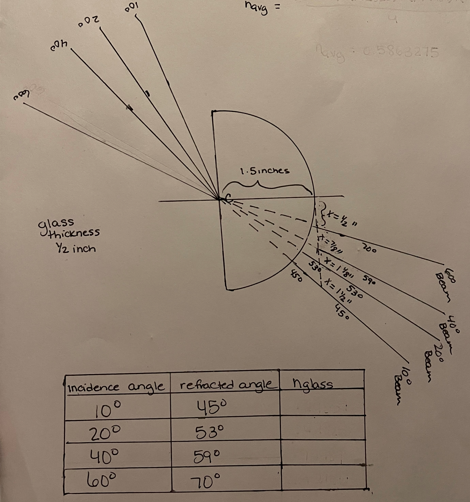 navg =
10°
20°
40°
60°
1.5 inches
C
glass
thickness
1/2 inch
x = 1/2"
x = 7/8"
x = 1 1/8"
x = 1 1/2"
70°
59°
53°
53°
45°
45°
60°
Beam
40°
Beam
20°
Beam
10°
Beam
incidence angle refracted angle nglass
10° 45°
20° 53°
40° 59°
60° 70°